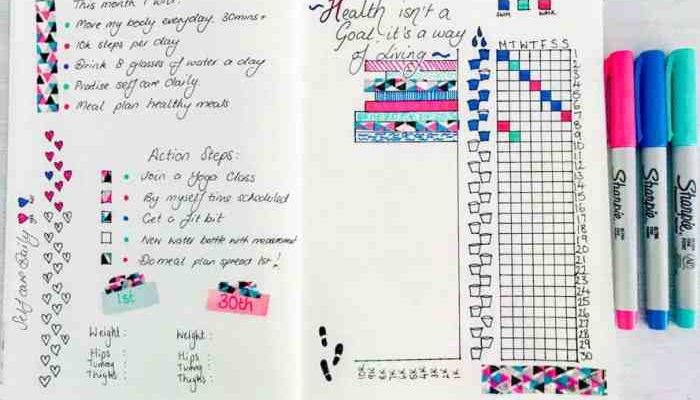 This month I will:
Move my body everyday. 30mins+
10k steps per day
Drink 8 glasses of water a day
Practise self care daily.
Meal plan healthy meals
Action Steps:
Join a Yoga Class
By myself time scheduled
Get a fit bit
New water bottle with measurement
Do meal plan spread 1st!
Self care daily
1st
30th
Weight :
Hips :
Tummy :
Thighs :
Weight :
Hips :
Tummy :
Thighs :
~Health isn't a
Goal it's a way
of Living~
10K 9K 8K 7K 6K 5K 4K 3K 2K 1K
SWIM
WALK
M T W T F S S
1
2
3
4
5
6
7
8
9
10
11
12
13
14
15
16
17
18
19
20
21
22
23
24
25
26
27
28
29
30
Sharpie
Sharpie
Sharpie